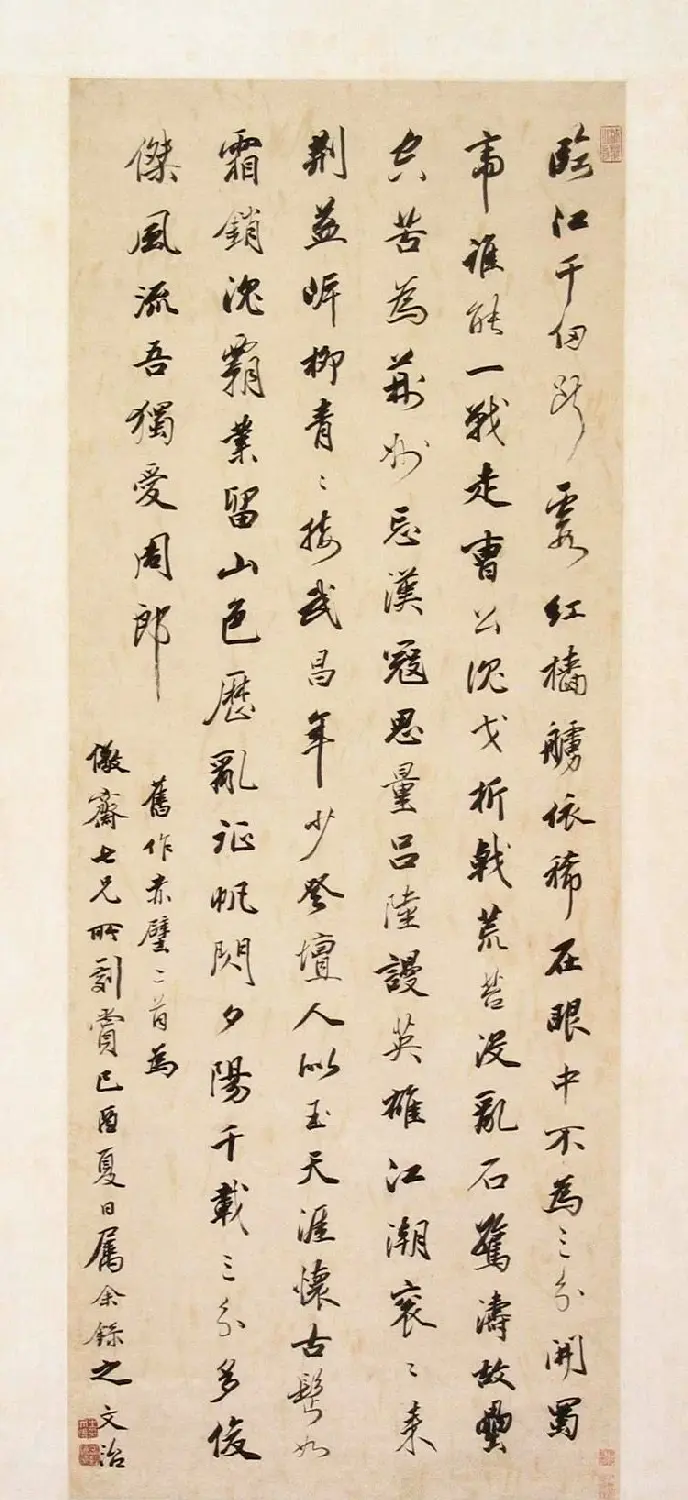 臨江千仞斷霞紅檣艣依稀在眼中不為三分開蜀
帝誰能一戰走曹公沈戈折戟荒苔沒亂石驚濤故壘
空苦為荊州忘漢寇思量呂陸謾英雄江潮袞〻來
荊益岸柳青〻接武昌年少登壇人似玉天涯懷古鬢如
霜銷沈霸業留山色歷亂征帆閃夕陽千載三分多俊
傑風流吾獨愛周郎
舊作赤壁二首為
儆齋七兄所劇賞己酉夏日屬余錄之 文治